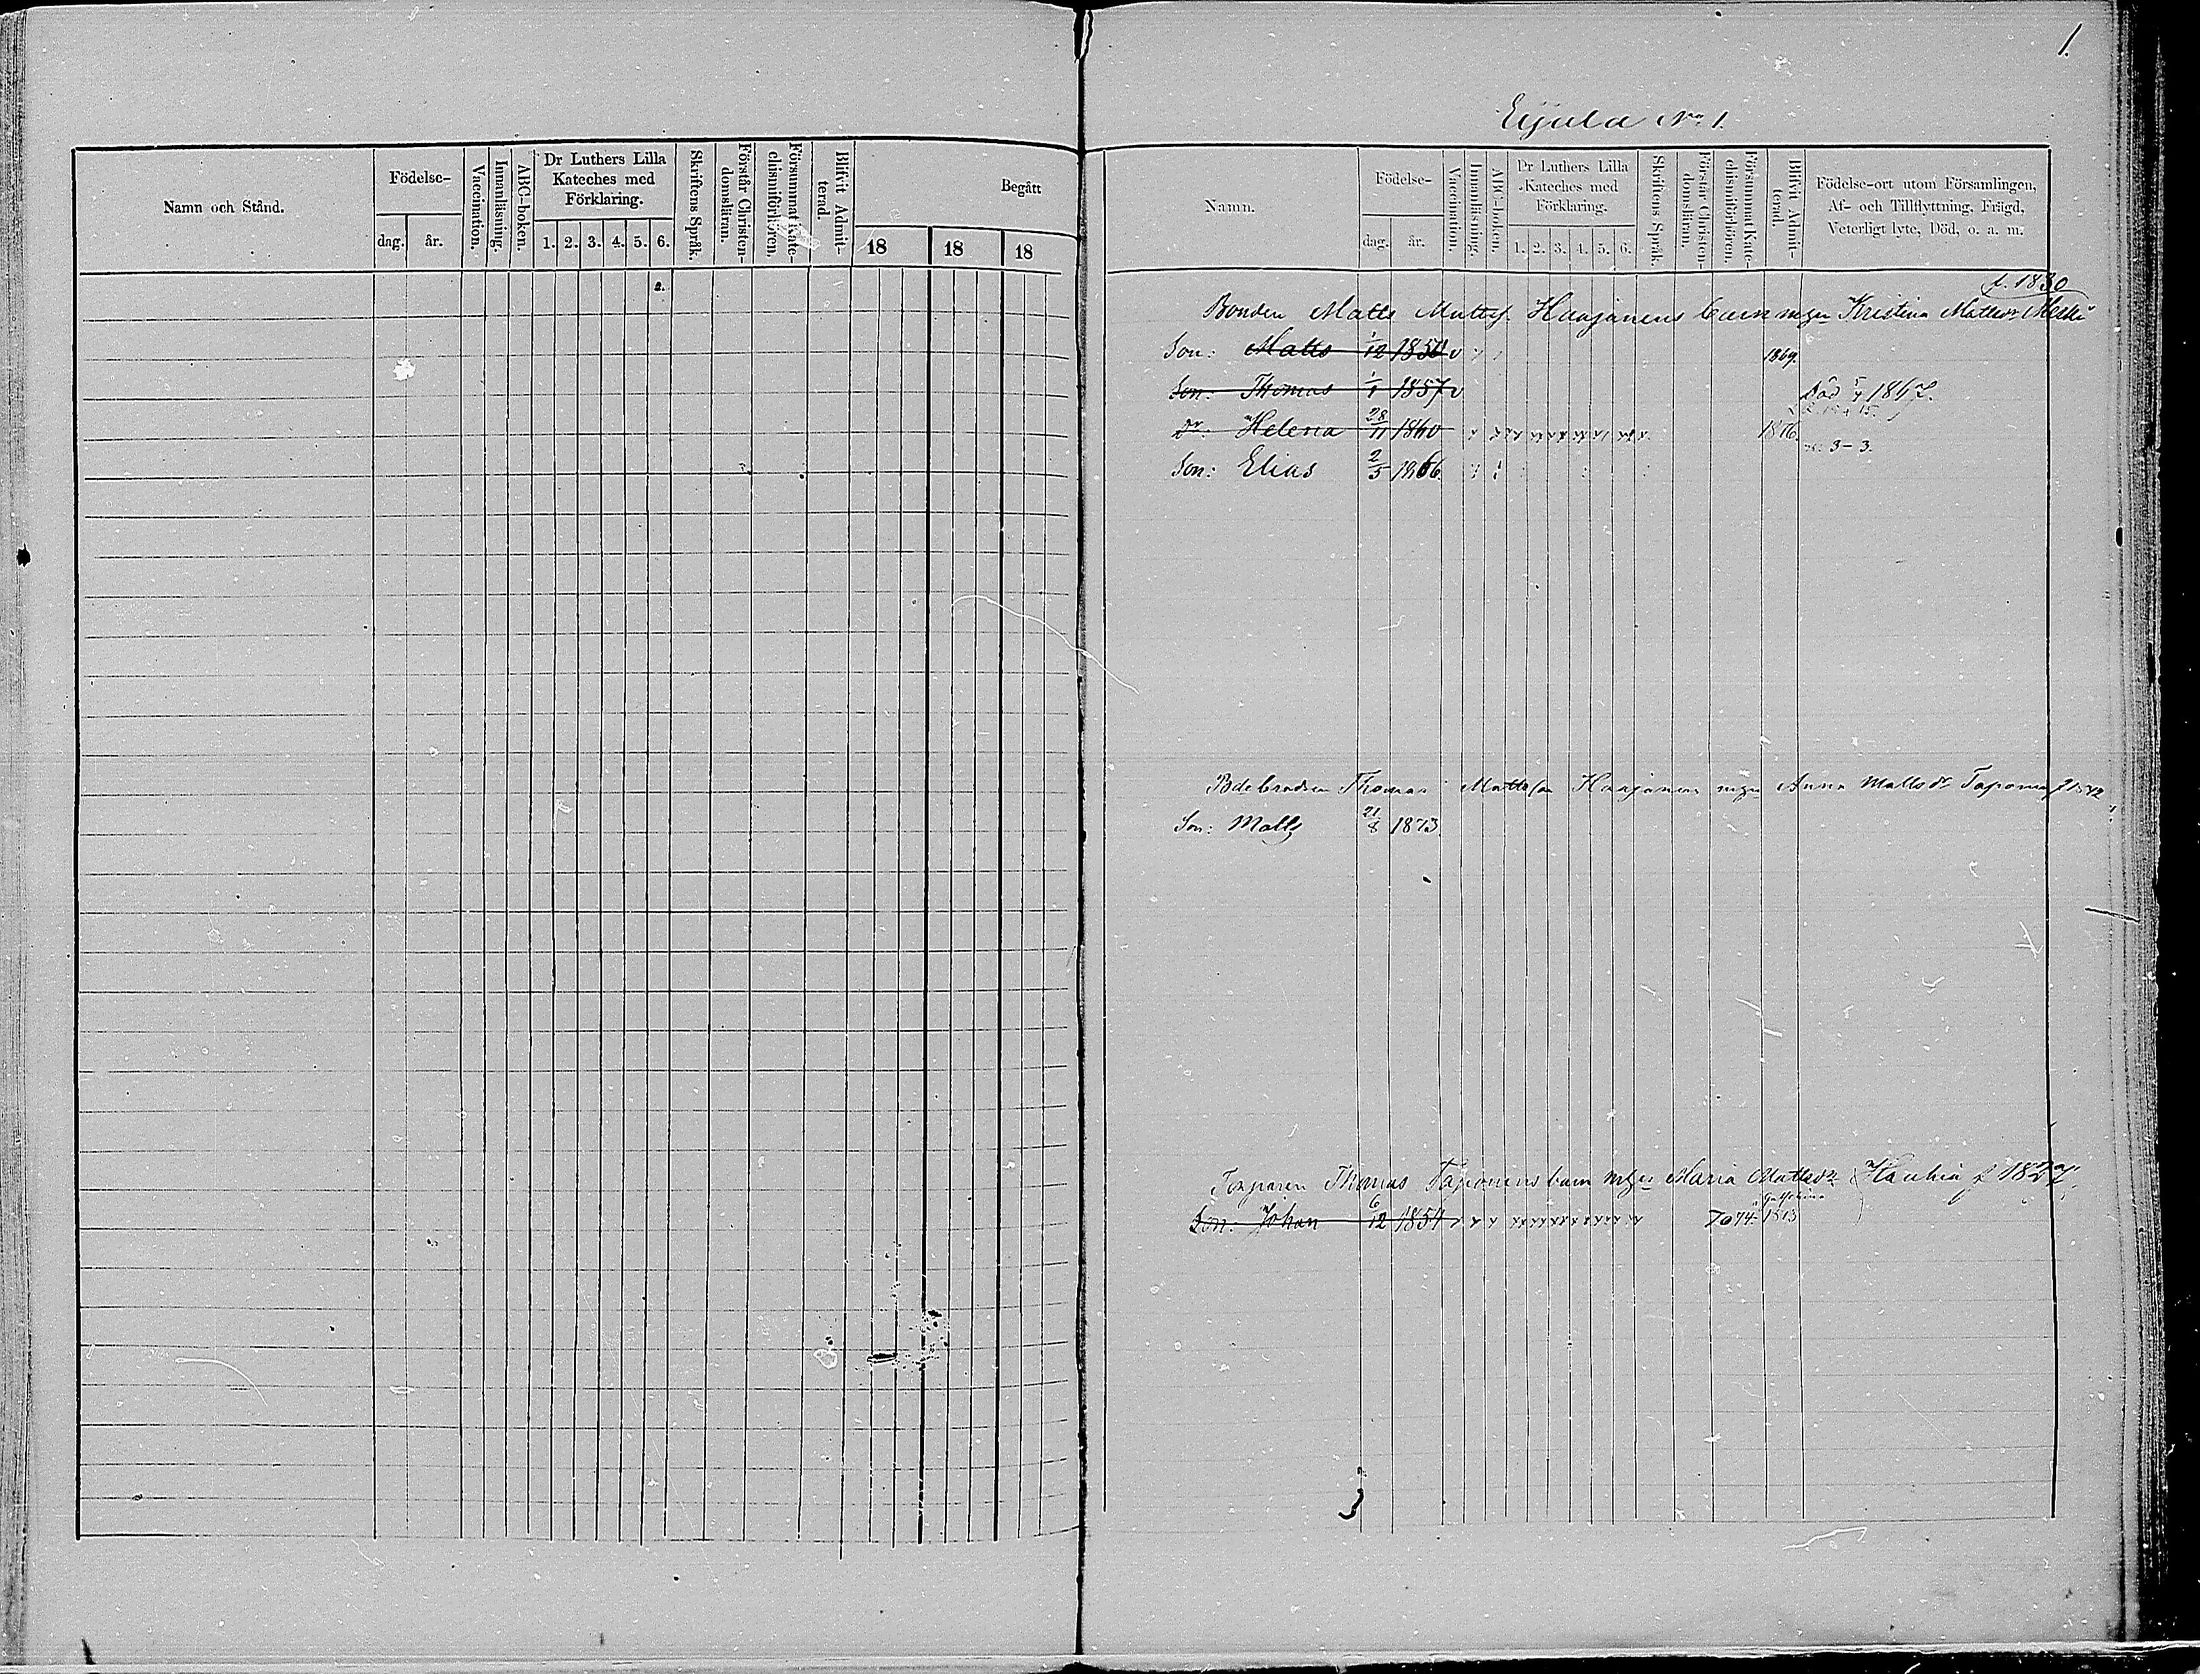 Namn och Stånd.
Födelse-
dag. år.
Vaccination.
Innanläsning.
ABC-boken.
Dr Luthers Lilla
Kateches med
Förklaring.
1. 2. 3. 4. 5. 6.
Skriftens Språk.
Förstår Christen-
domsläran.
Försummat Kate-
chismiförhören.
Blifvit Admit-
terad.
Begått
18 18 18
1.
No 1.
Namn.
Födelse-
dag. år.
Vaccination.
Innanläsning.
ABC-boken.
Dr Luthers Lilla
Kateches med
Förklaring.
1. 2. 3. 4. 5. 6.
Skriftens Språk.
Förstår Christen-
domsläran.
Försummat Kate-
chismiförhören.
Blifvit Admit-
terad.
Födelse-ort utom Församlingen,
Af- och Tillflyttning, Frägd,
Veterligt lyte, Död, o. a. m.
f. 1830
Bonden Matts Mattsf. Haajanens barn mgn Kristina Mattsdr
Son: Matts 1/12 1851 v 1869.
Son: Thomas 1/1 1857 v Död 1867.
Dr: Helena 28/11 1860 1876. 3-3.
Son: Elias 2/5 1866.
Thomas Mattsson Haajanen mgn Anna Mattsdr Taponen
Son: Matts 21/8 1873.
Torparen Thomas Taponens barn mgn Maria Mattsdr
Son: Johan 6/12 1854